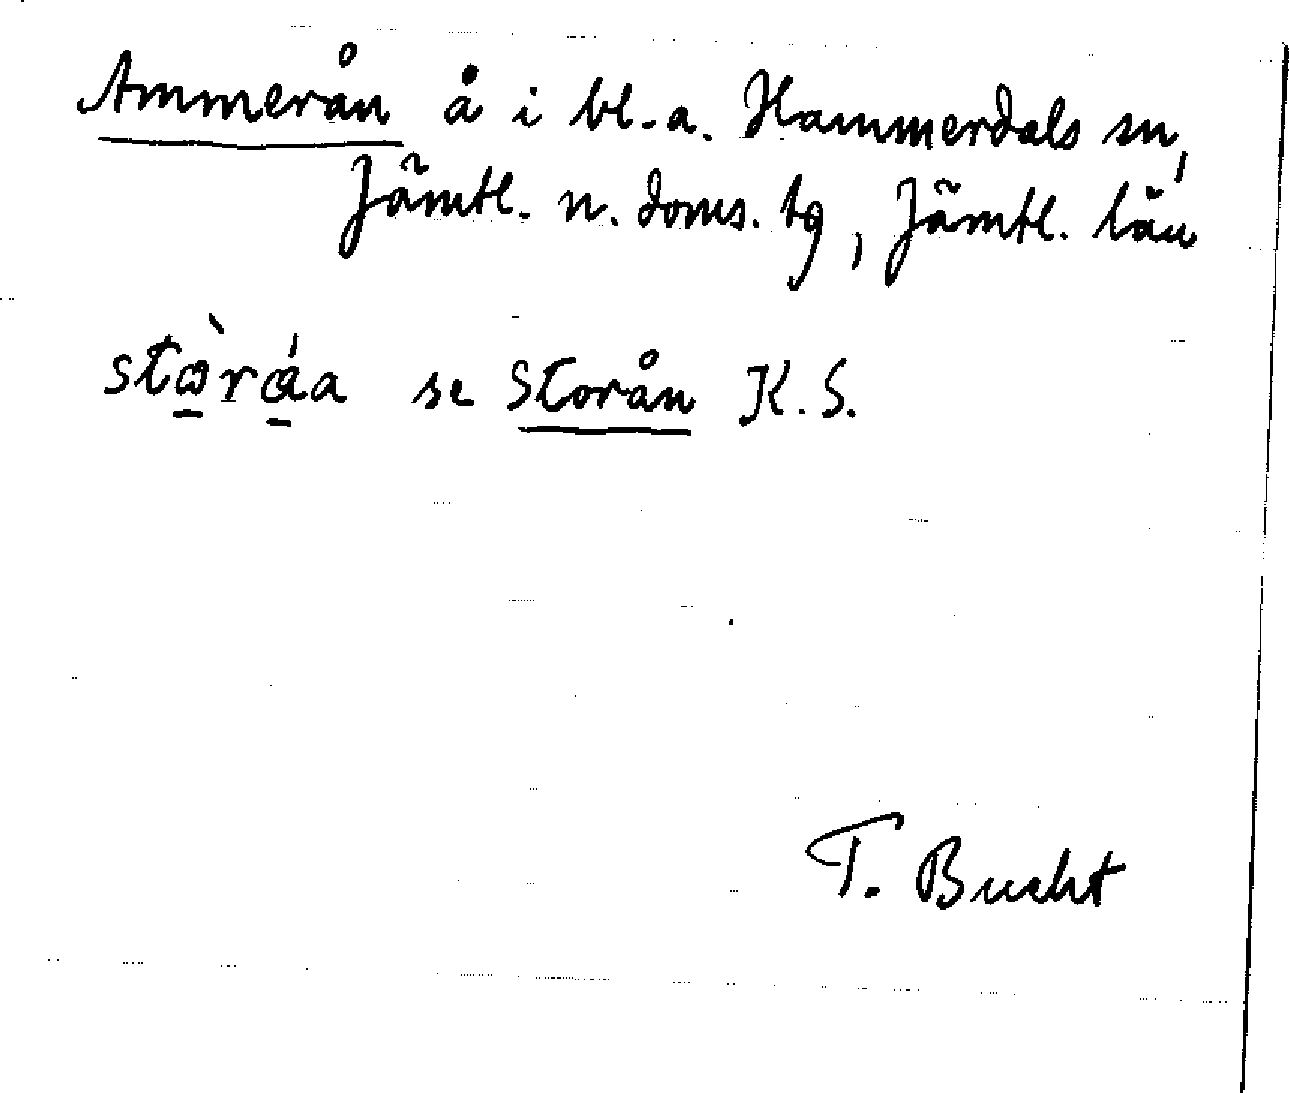 Ammerån å i bl.a. Hammerdals sn,
Jämtl. n. doms. tg, Jämtl. län
stò̱rá̱a se Storån K.S.
T. Bucht